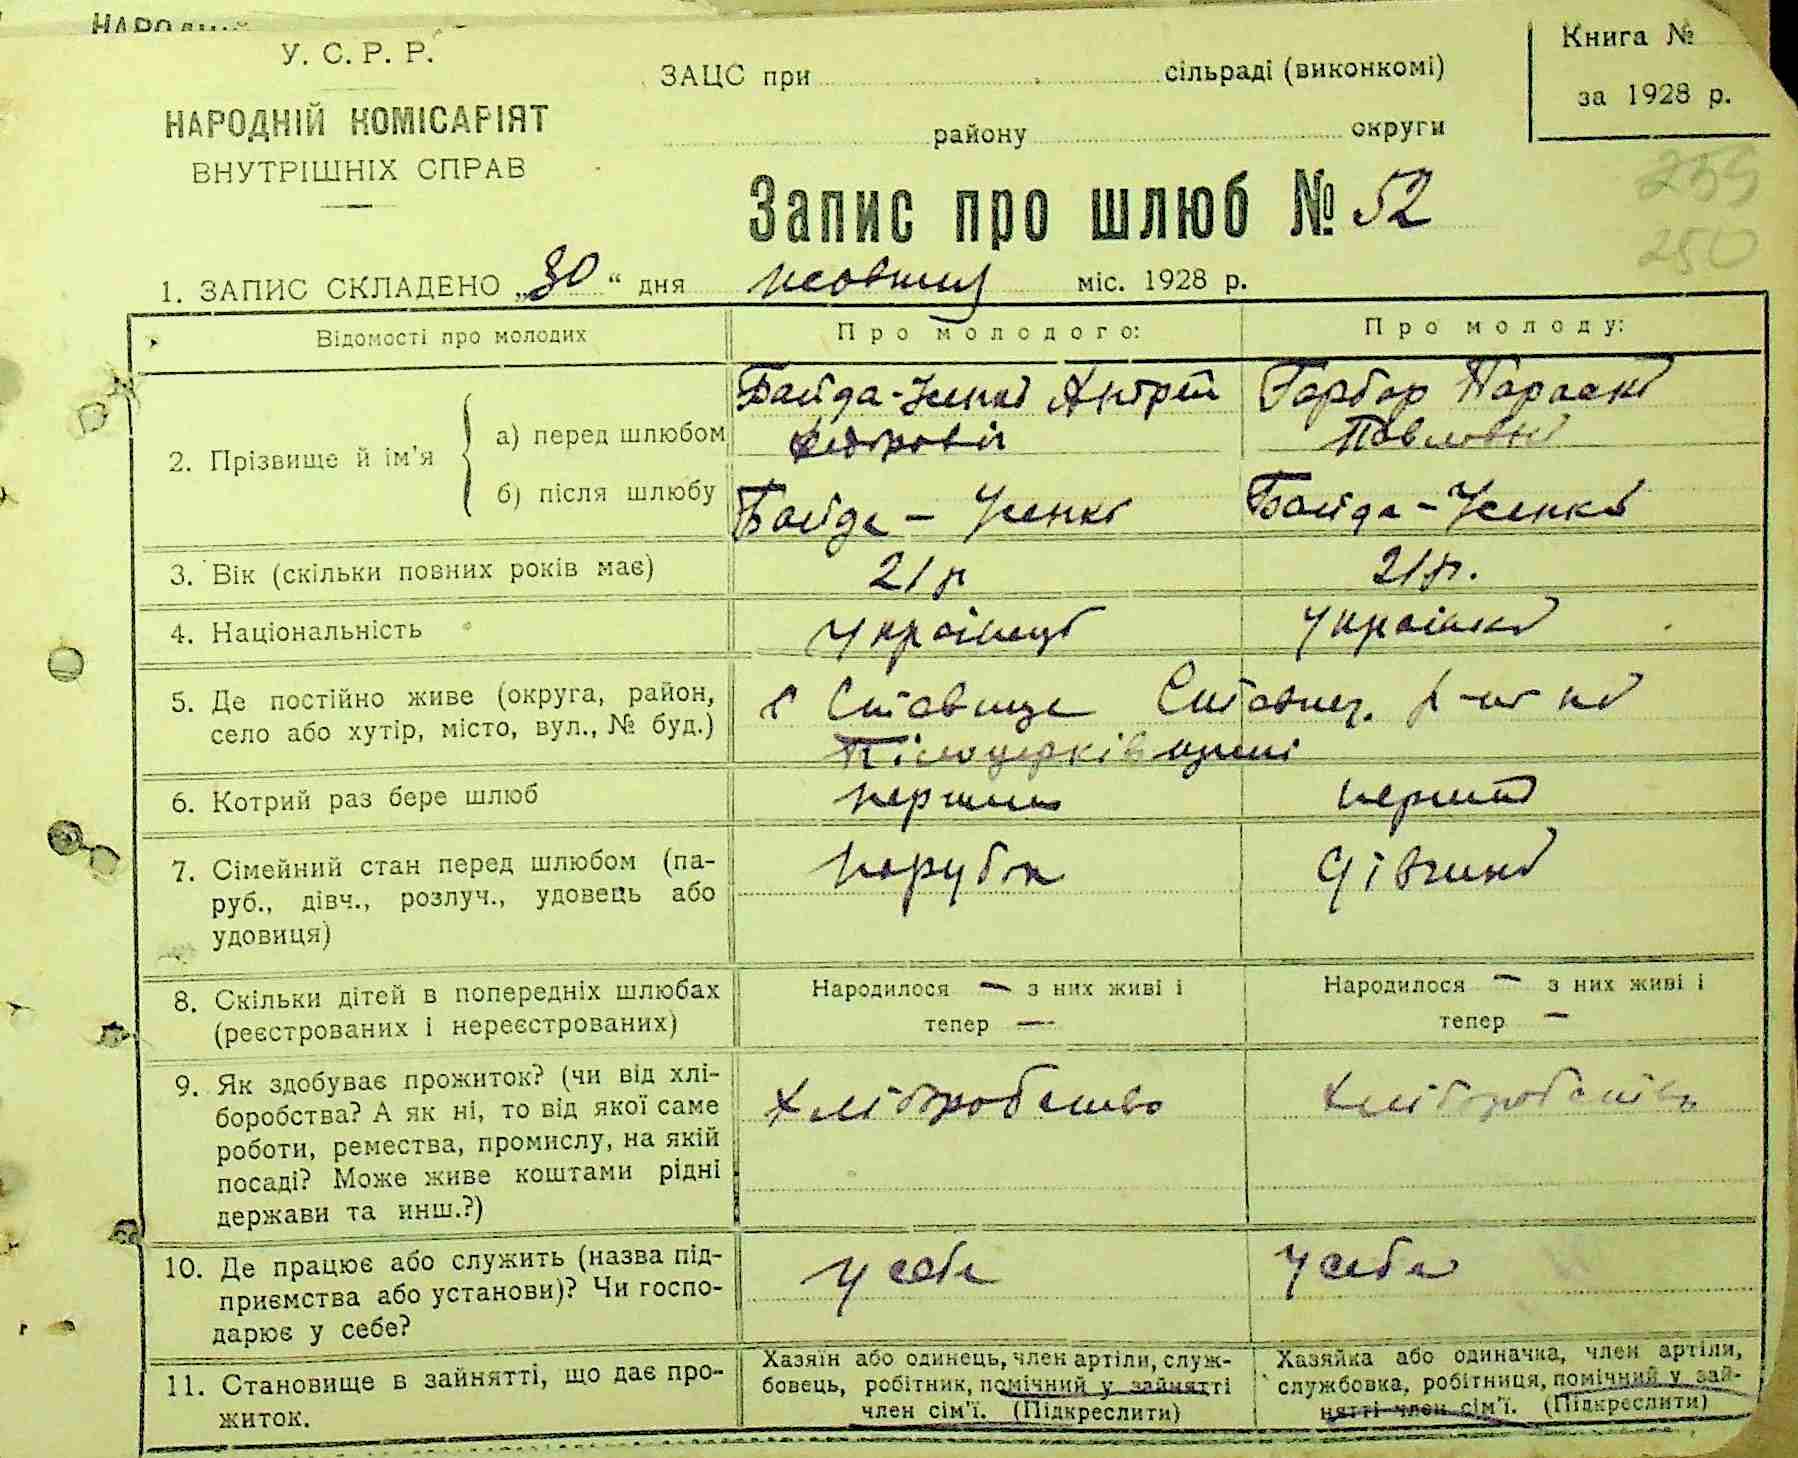 У. С. Р. Р.
НАРОДНІЙ КОМІСАРІЯТ
ВНУТРІШНІХ СПРАВ
ЗАЦС при сільраді (виконкомі)
району округи
Книга №
за 1928 р.
Запис про шлюб № 52
259
250
1. ЗАПИС СКЛАДЕНО „30“ дня жовтня міс. 1928 р.
Відомості про молодих
Про молодого:
Про молоду:
2. Прізвище й ім'я
а) перед шлюбом
Байда-Усенко Андрій
Федорович
Гарбар Параска
Павловна
б) після шлюбу
Байда - Усенко
Байда - Усенко
3. Вік (скільки повних років має)
21 р
21 р.
4. Національність
Українець
Українка
5. Де постійно живе (округа, район,
село або хутір, місто, вул., № буд.)
с Ставище Ставищ. р-ну на
Білоцерківщині
6. Котрий раз бере шлюб
перший
перший
7. Сімейний стан перед шлюбом (па-
руб., дівч., розлуч., удовець або
удовиця)
парубок
дівчина
8. Скільки дітей в попередніх шлюбах
(реєстрованих і нереєстрованих)
Народилося — з них живі і
тепер —
Народилося — з них живі і
тепер —
9. Як здобуває прожиток? (чи від хлі-
боробства? А як ні, то від якої саме
роботи, ремества, промислу, на якій
посаді? Може живе коштами рідні
держави та инш.?)
Хліборобство
Хліборобство
10. Де працює або служить (назва під-
приємства або установи)? Чи госпо-
дарює у себе?
У себе
У себе
11. Становище в зайнятті, що дає про-
житок.
Хазяїн або одинець, член артіли, служ-
бовець, робітник, помічний у зайнятті
член сім'ї. (Підкреслити)
Хазяйка або одиначка, член артіли,
службовка, робітниця, помічний у зай-
нятті член сім'ї. (Підкреслити)